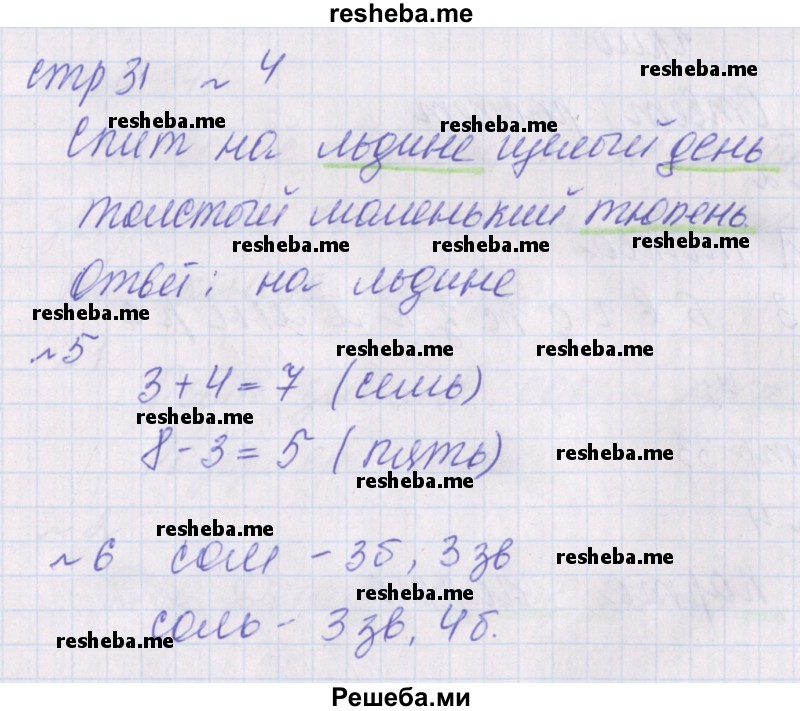 resheba.me
стр 31 ~ 4
resheba.me
resheba.me
resheba.me
Спит на льдине целый день
толстый маленький тюлень
resheba.me
resheba.me
resheba.me
Ответ: на льдине
resheba.me
~ 5
resheba.me
resheba.me
3 + 4 = 7 (семь)
resheba.me
8 - 3 = 5 (пять)
resheba.me
resheba.me
resheba.me
~ 6 сом - 3б, 3 зв
resheba.me
resheba.me
соль - 3 зв, 4б.
resheba.me
Решеба.ми